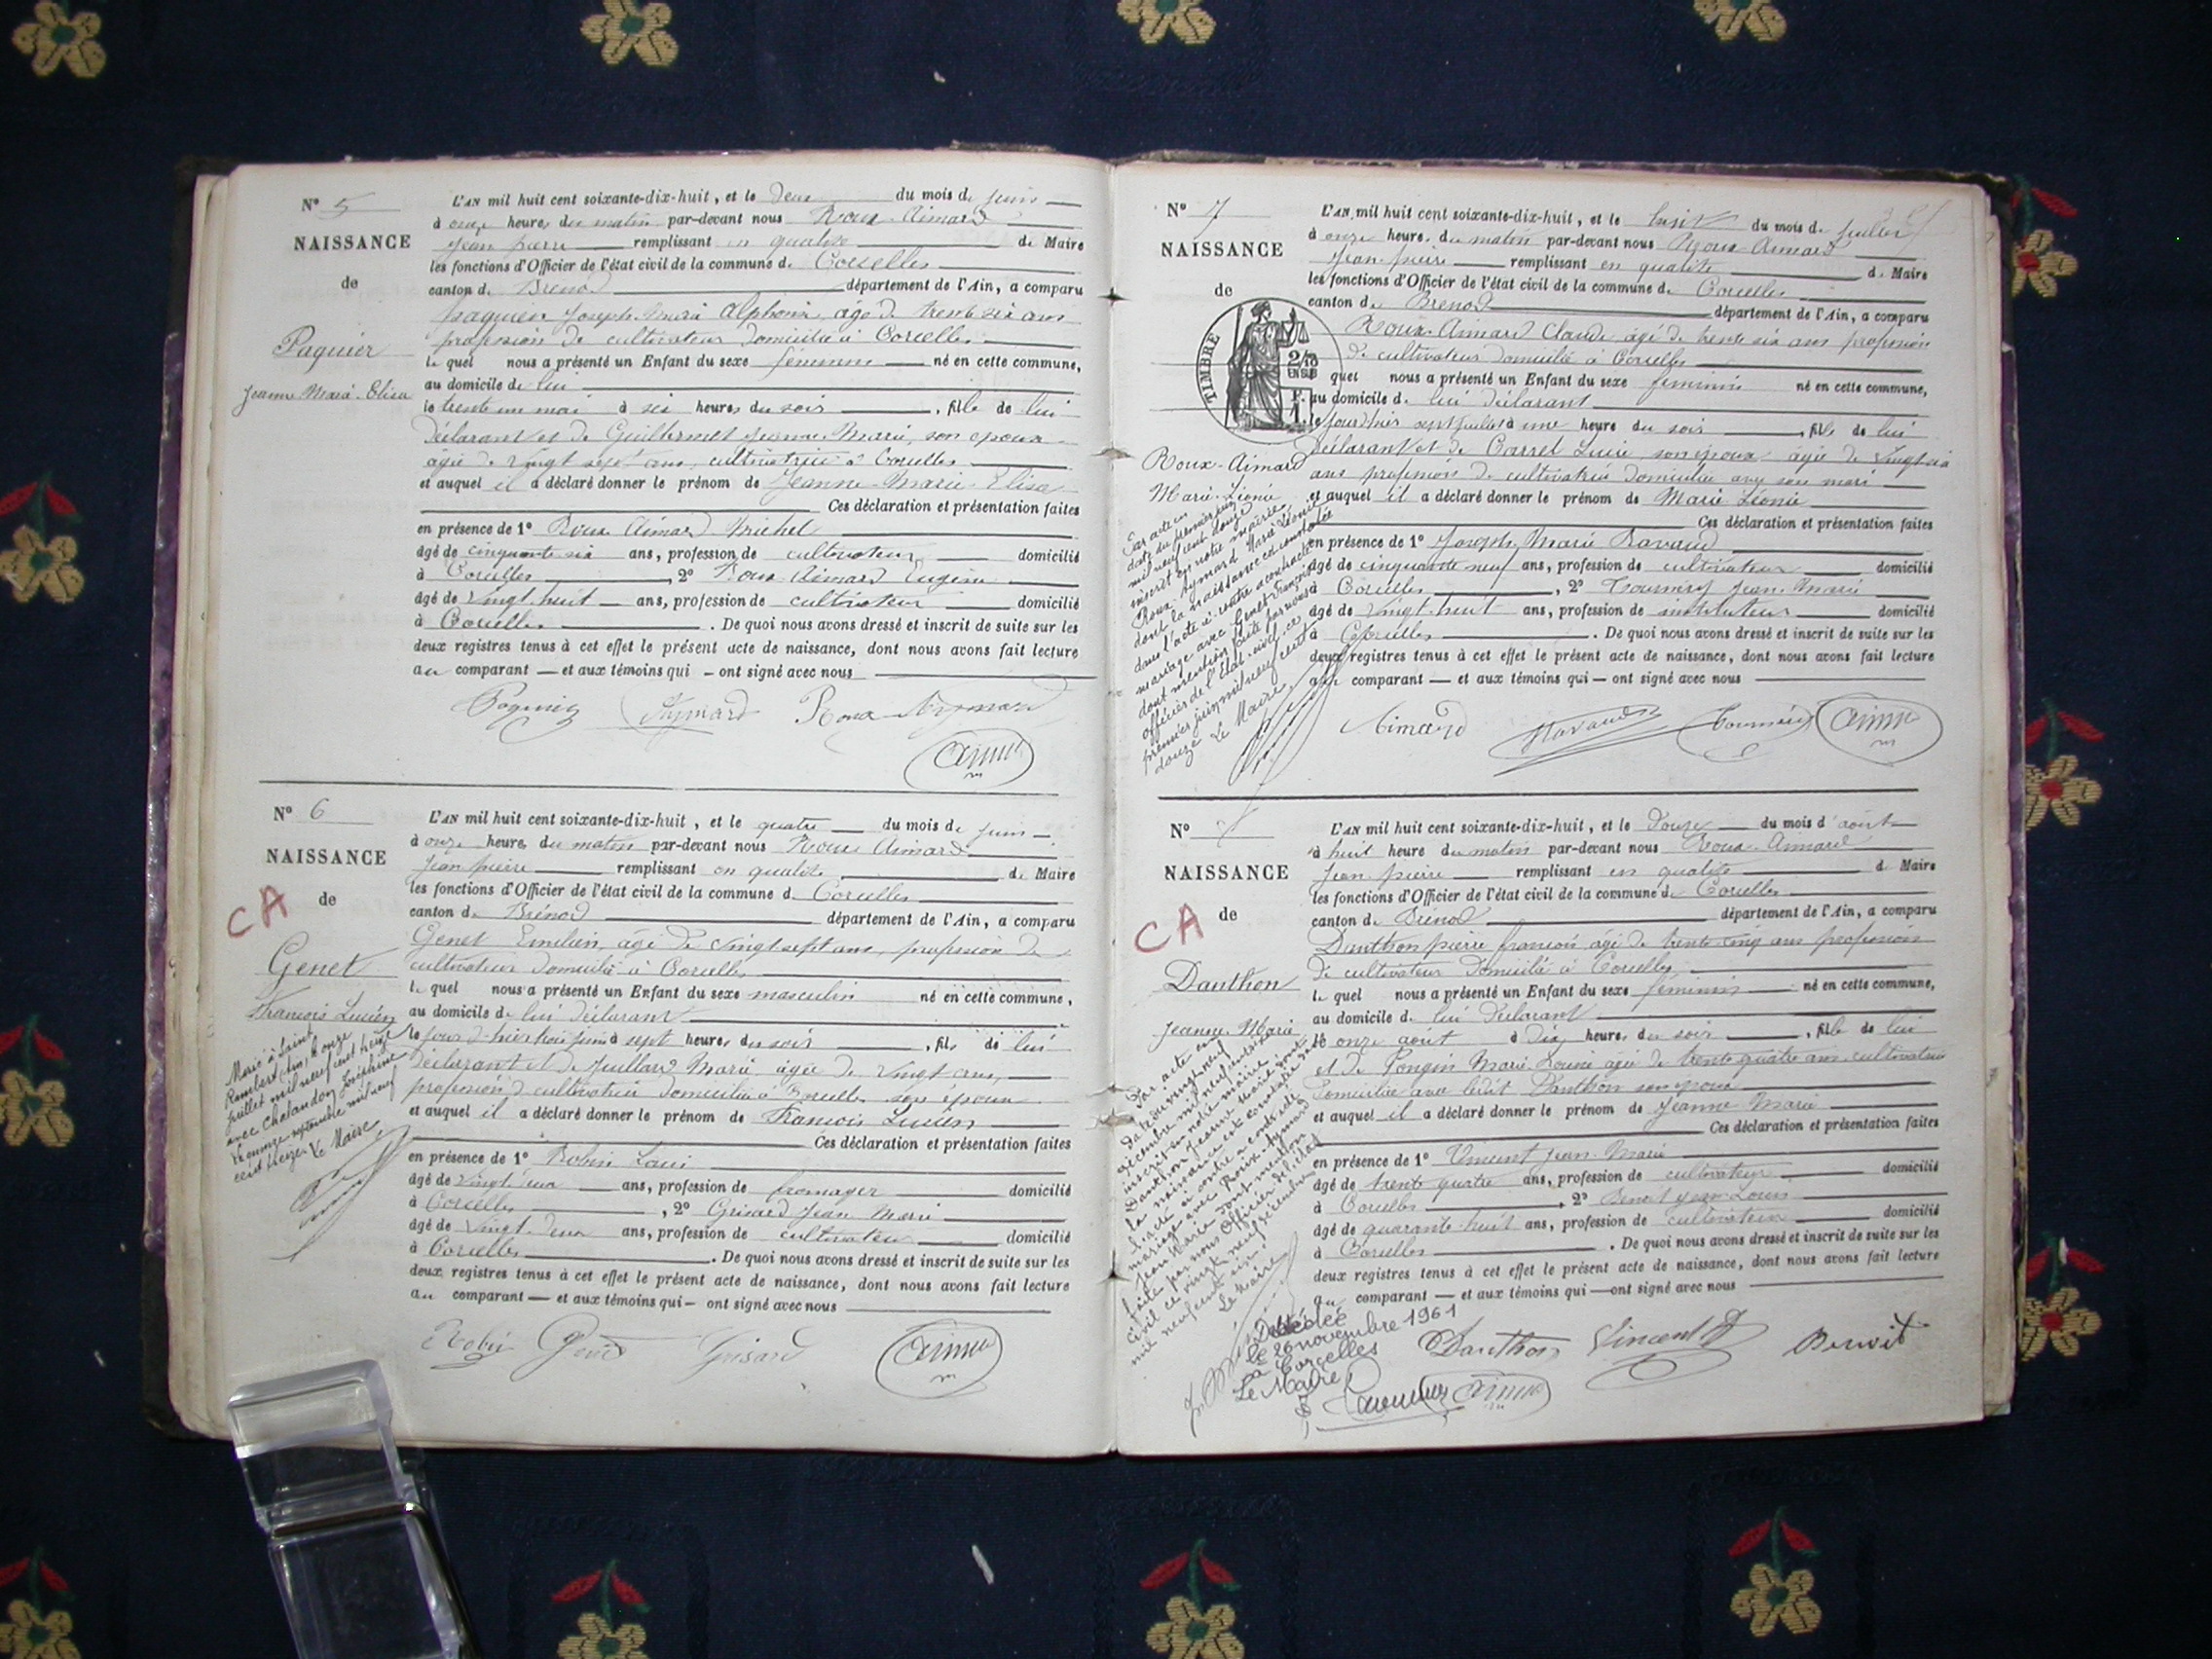 N° 5
NAISSANCE
de
Paquier
Jeanne Marie Elisa
L'AN mil huit cent soixante-dix-huit, et le deux du mois de juin
à onze heures du matin par-devant nous Roux-Aimard
Jean pierre remplissant en qualité de Maire
les fonctions d'Officier de l'état civil de la commune de Corcelles
canton de Brenod département de l'Ain, a comparu
paquier Joseph Marie Alphonse, âgé de trente six ans
profession de cultivateur domicilié à Corcelles
le quel nous a présenté un Enfant du sexe féminin né en cette commune,
au domicile de lui
le trente un mai à six heures du soir, fille de lui
déclarant et de Guillermet Jeanne Marie, son épouse
âgée de vingt sept ans, cultivatrice à Corcelles
et auquel il a déclaré donner le prénom de Jeanne-Marie-Elisa
Ces déclaration et présentation faites
en présence de 1° Roux Aimard Michel
âgé de cinquante six ans, profession de cultivateur domicilié
à Corcelles, 2° Roux Aimard Eugène
âgé de vingt huit ans, profession de cultivateur domicilié
à Corcelles. De quoi nous avons dressé et inscrit de suite sur les
deux registres tenus à cet effet le présent acte de naissance, dont nous avons fait lecture
au comparant et aux témoins qui ont signé avec nous
Paquier Aymard Roux Aymard
Aimard
N° 6
NAISSANCE
de
CA
Genet
François Lucien
Marié à Saint
Rambert, Ain, le onze
juillet mil neuf cent treize
avec Chalandon Joséphine
Le quinze septembre mil neuf
cent treize. Le Maire
L'AN mil huit cent soixante-dix-huit, et le quatre du mois de juin
à onze heures du matin par-devant nous Roux Aimard
Jean pierre remplissant en qualité de Maire
les fonctions d'Officier de l'état civil de la commune de Corcelles
canton de Brénod département de l'Ain, a comparu
Genet Emilien, âgé de vingt sept ans, profession de
cultivateur domicilié à Corcelles
le quel nous a présenté un Enfant du sexe masculin né en cette commune,
au domicile de lui déclarant
le jour d'hier trois juin à sept heures du soir, fils de lui
déclarant et de Juillard Marie âgée de vingt ans,
profession de cultivatrice domiciliée à Corcelles son épouse
et auquel il a déclaré donner le prénom de François Lucien
Ces déclaration et présentation faites
en présence de 1° Robin Louis
âgé de vingt deux ans, profession de fromager domicilié
à Corcelles, 2° Grisard Jean Marie
âgé de vingt deux ans, profession de cultivateur domicilié
à Corcelles. De quoi nous avons dressé et inscrit de suite sur les
deux registres tenus à cet effet le présent acte de naissance, dont nous avons fait lecture
au comparant et aux témoins qui ont signé avec nous
Robin Genet Grisard Aimard
N° 7
NAISSANCE
de
TIMBRE
2/10
EN SUS
Roux-Aimard
Marie-Léonie
Par acte en
date du premier juin
mil neuf cent douze
inscrit en notre mairie,
Roux Aymard Marie Léonie
dont la naissance est constatée
dans l'acte ci-contre a contracté
mariage avec Genet François
dont mention faite par nous
officier de l'Etat-civil, ce
premier juin mil neuf cent
douze Le Maire,
L'AN mil huit cent soixante-dix-huit, et le huit du mois de juillet
à onze heures du matin par-devant nous Roux Aimard
Jean-pierre remplissant en qualité de Maire
les fonctions d'Officier de l'état civil de la commune de Corcelles
canton de Brenod département de l'Ain, a comparu
Roux-Aimard Claude âgé de trente six ans profession
de cultivateur domicilié à Corcelles
quel nous a présenté un Enfant du sexe feminin né en cette commune,
au domicile de lui déclarant
le jour d'hier sept juillet à une heure du soir, fille de lui
déclarant et de Carrel Lucie, son épouse âgée de vingt six
ans profession de cultivatrice domiciliée avec son mari
et auquel il a déclaré donner le prénom de Marie Léonie
Ces déclaration et présentation faites
en présence de 1° Joseph Marie Ravaud
âgé de cinquante neuf ans, profession de cultivateur domicilié
à Corcelles, 2° Tournier Jean Marie
âgé de vingt-huit ans, profession de instituteur domicilié
à Corcelles. De quoi nous avons dressé et inscrit de suite sur les
deux registres tenus à cet effet le présent acte de naissance, dont nous avons fait lecture
au comparant et aux témoins qui ont signé avec nous
Aimard Ravaud Tournier Aimard
N° 8
NAISSANCE
de
CA
Danthon
Jeanne Marie
Par acte en
date du vingt neuf
décembre mil neuf cent six
inscrit en notre mairie
Danthon Jeanne Marie dont
la naissance est constatée dans
l'acte ci contre a contracté
mariage avec Roux-Aymard
Jean Marie dont mention
faite par nous Officier de l'état
civil ce vingt neuf décembre
mil neuf cent six.
Le Maire
Décédée
le 26 novembre 1961
à Corcelles
Le Maire
L'AN mil huit cent soixante-dix-huit, et le douze du mois d'août
à huit heure du matin par-devant nous Roux-Aimard
Jean-pierre remplissant en qualité de Maire
les fonctions d'Officier de l'état civil de la commune de Corcelles
canton de Brénod département de l'Ain, a comparu
Danthon pierre françois, âgé de trente-cinq ans profession
de cultivateur domicilié à Corcelles
le quel nous a présenté un Enfant du sexe feminin né en cette commune,
au domicile de lui déclarant
le onze août à dix heures du soir, fille de lui
et de Pongin Marie Louise âgée de trente quatre ans cultivatrice
domiciliée avec ledit Danthon son époux
et auquel il a déclaré donner le prénom de Jeanne Marie
Ces déclaration et présentation faites
en présence de 1° Vincent Jean-Marie
âgé de trente quatre ans, profession de cultivateur domicilié
à Corcelles, 2° Benoit Jean-Louis
âgé de quarante-huit ans, profession de cultivateur domicilié
à Corcelles. De quoi nous avons dressé et inscrit de suite sur les
deux registres tenus à cet effet le présent acte de naissance, dont nous avons fait lecture
au comparant et aux témoins qui ont signé avec nous
Danthon Vincent Benoit
Aimard